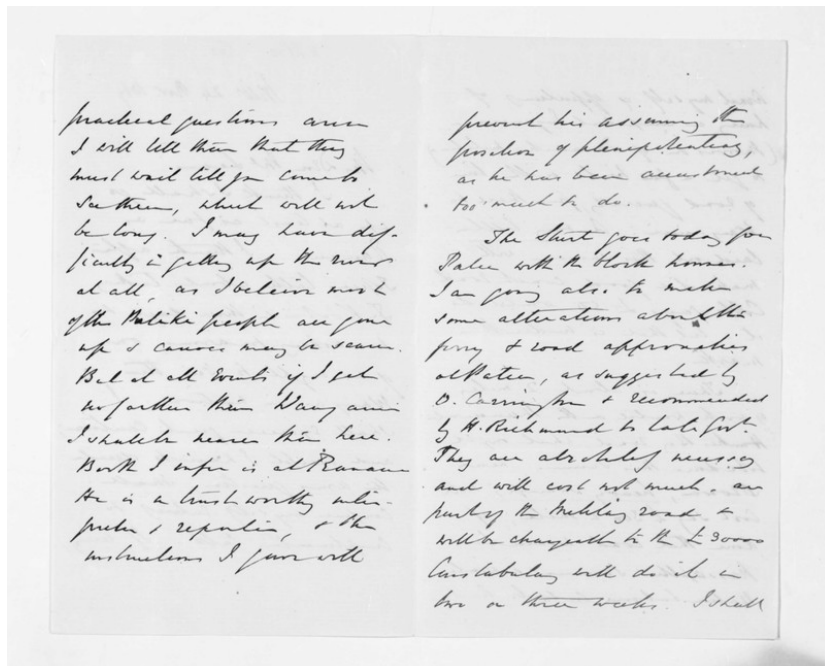 practical questions arise
I will tell them that they
must wait till you come to
see them, which will not
be long. I may have dif-
ficulty in getting up the river
at all, as I believe most
of the people are gone
up & canoes may be scarce.
But at all events if I get
no farther than Wanganui
I shall be nearer than here.
Booth I infer is at Ranana
He is a trustworthy inter-
preter & reporter, & the
instructions I gave will
prevent his assuming the
position of plenipotentiary,
as he has been accustomed
too much to do.
The Sturt goes today for
Patea with the block houses.
I am going also to make
some alterations about the
ferry & road approaches
at Patea, as suggested by
O. Carrington & recommended
by H. Richmond to late Govt.
They are absolutely necessary
and will cost not much. are
part of the road &
will be chargeable to the £30000
Constabulary will do it in
two or three weeks. I shall